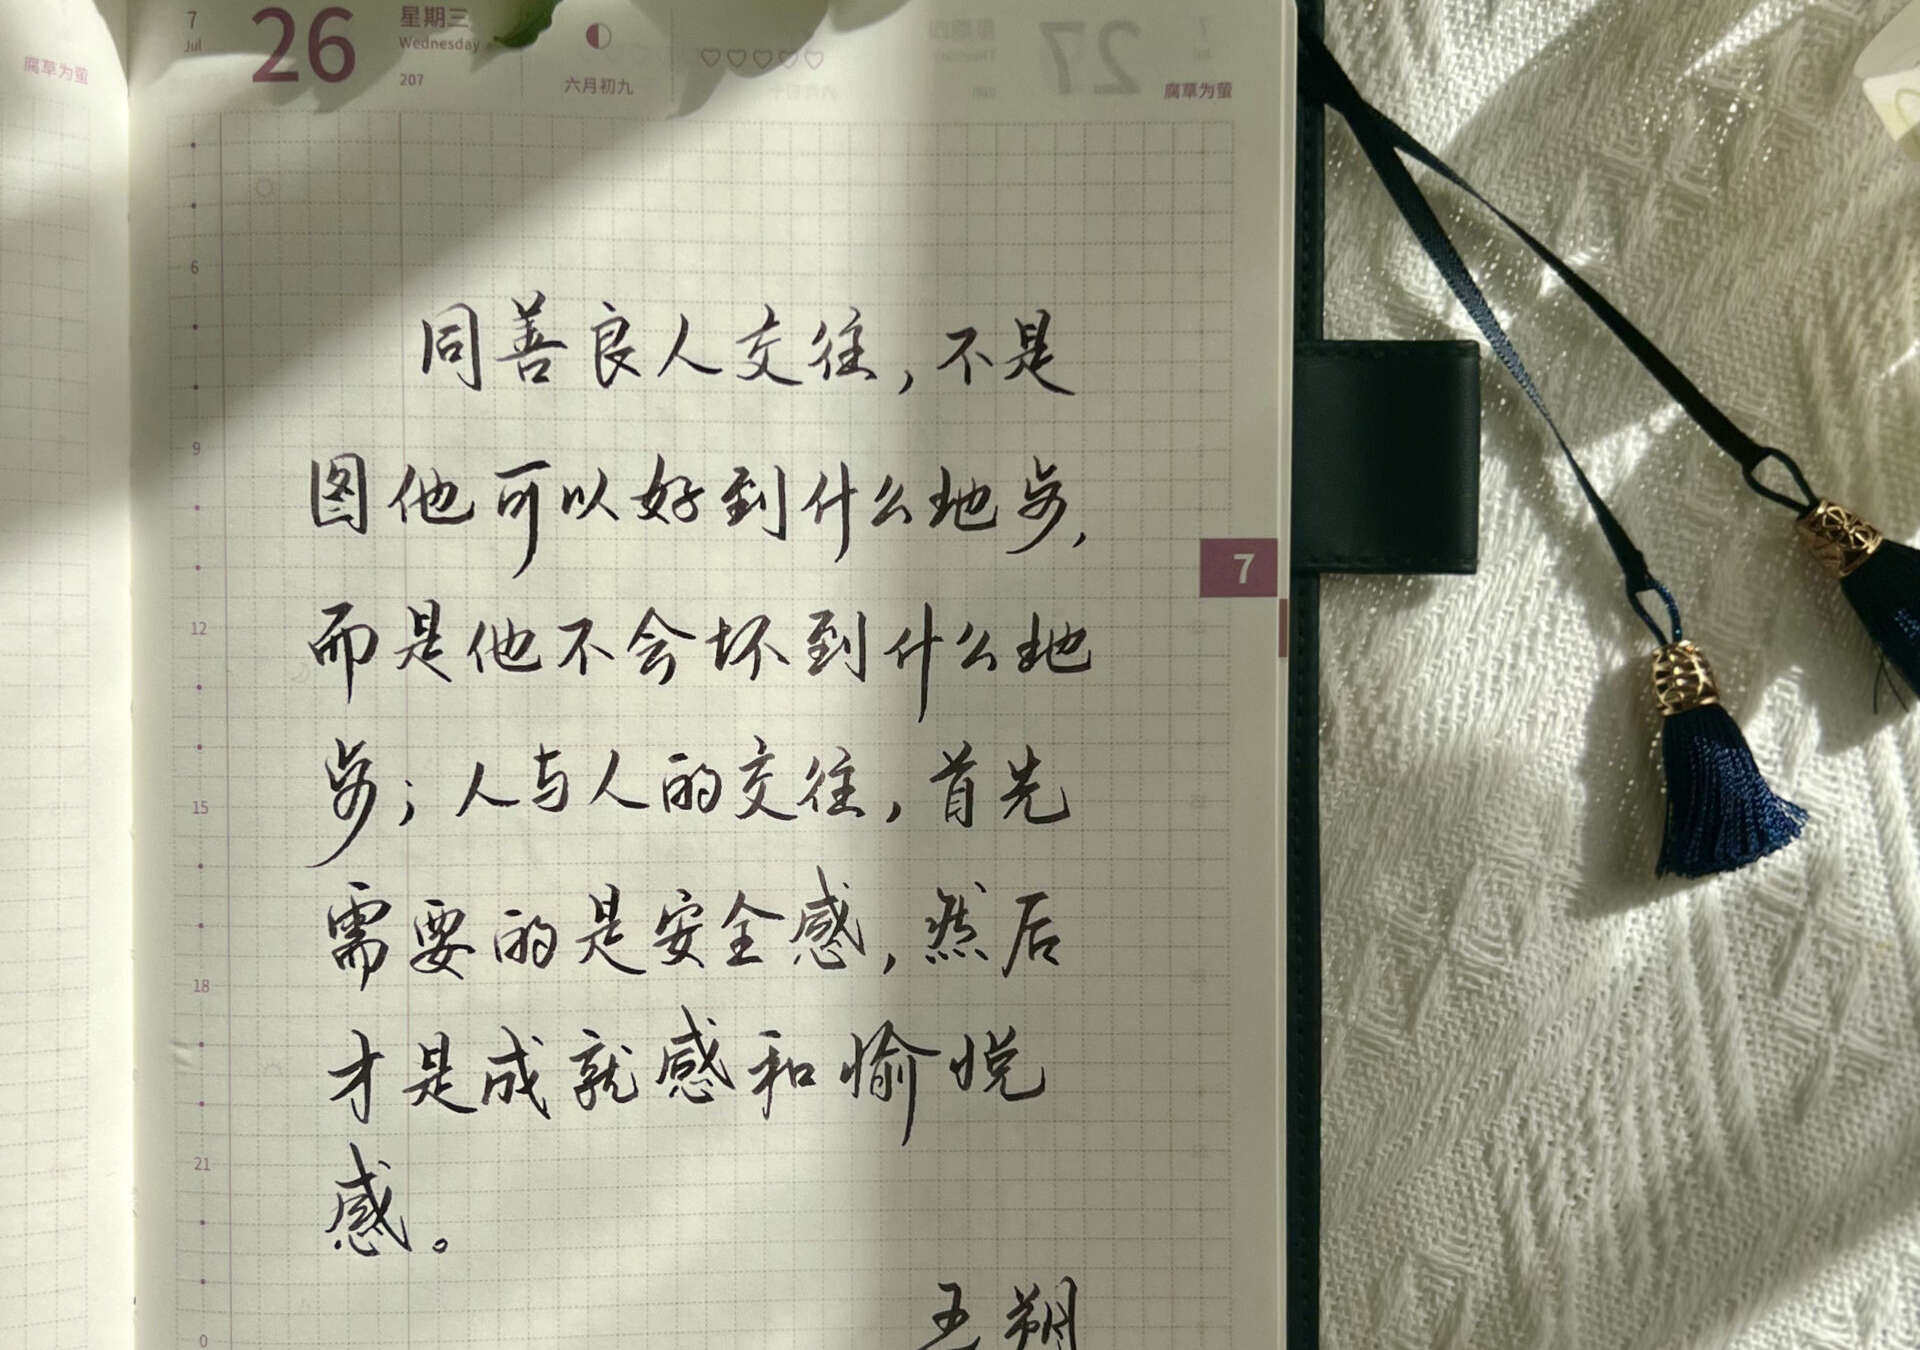 腐草为萤
7
Jul
26
星期三
Wednesday
207
六月初九
27
腐草为萤
6
同善良人交往，不是
9
图他可以好到什么地步，
7
12
而是他不会坏到什么地
步；人与人的交往，首先
15
需要的是安全感，然后
18
才是成就感和愉悦
21
感。
0
王朔